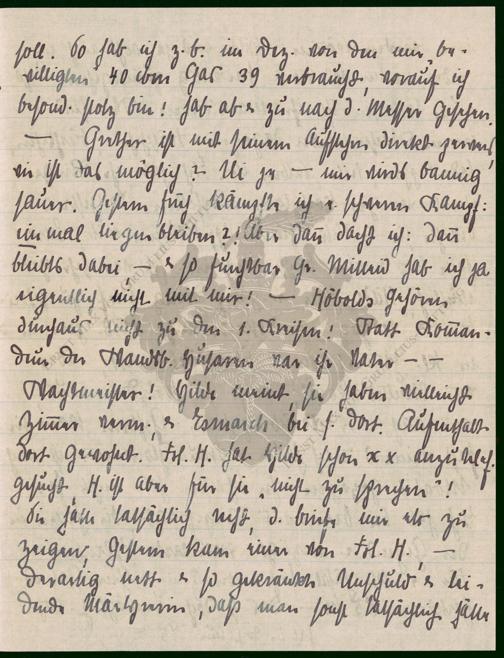 soll. So hab ich z. b. im Dez. von den mir „be-
willigten“ 40 cbm Gas 39 verbraucht, worauf ich
besond. stolz bin! Hab aber zu nach d. Messer gesehen.
— Günther ist mit seinem Aufstehen direkt
wie ist das möglich? Na ja — mir wirds bannig
sauer. Gestern früh kämpfte ich e. schweren Kampf:
einmal liegenbleiben?! Aber dann dacht ich: dann
bleibts dabei — & so furchtbar gr. Mitleid hab ich ja
eigentlich nicht mit mir! — Höbolds gehören
durchaus nicht zu den 1. Kreisen! Statt Koman-
deur der Wandsb. Husaren war ihr Vater — —
Wachtmeister! Hilde meint, sie haben vielleicht
Zimmer verm. & Esmarch bei s. dort. Aufenthalt
dort gewohnt. Frl. H. hat Hilde schon x x anzutelef.
gesucht, H. ist aber für sie „nicht zu sprechen“!
Sie hätte tatsächlich recht, d. briefe mir etc zu
zeigen, gestern kam einer von Frl. H., —
derartig nett & so gekränkte Unschuld & lei-
dende Märtyrerin, daß man sonst tatsächlich hätte